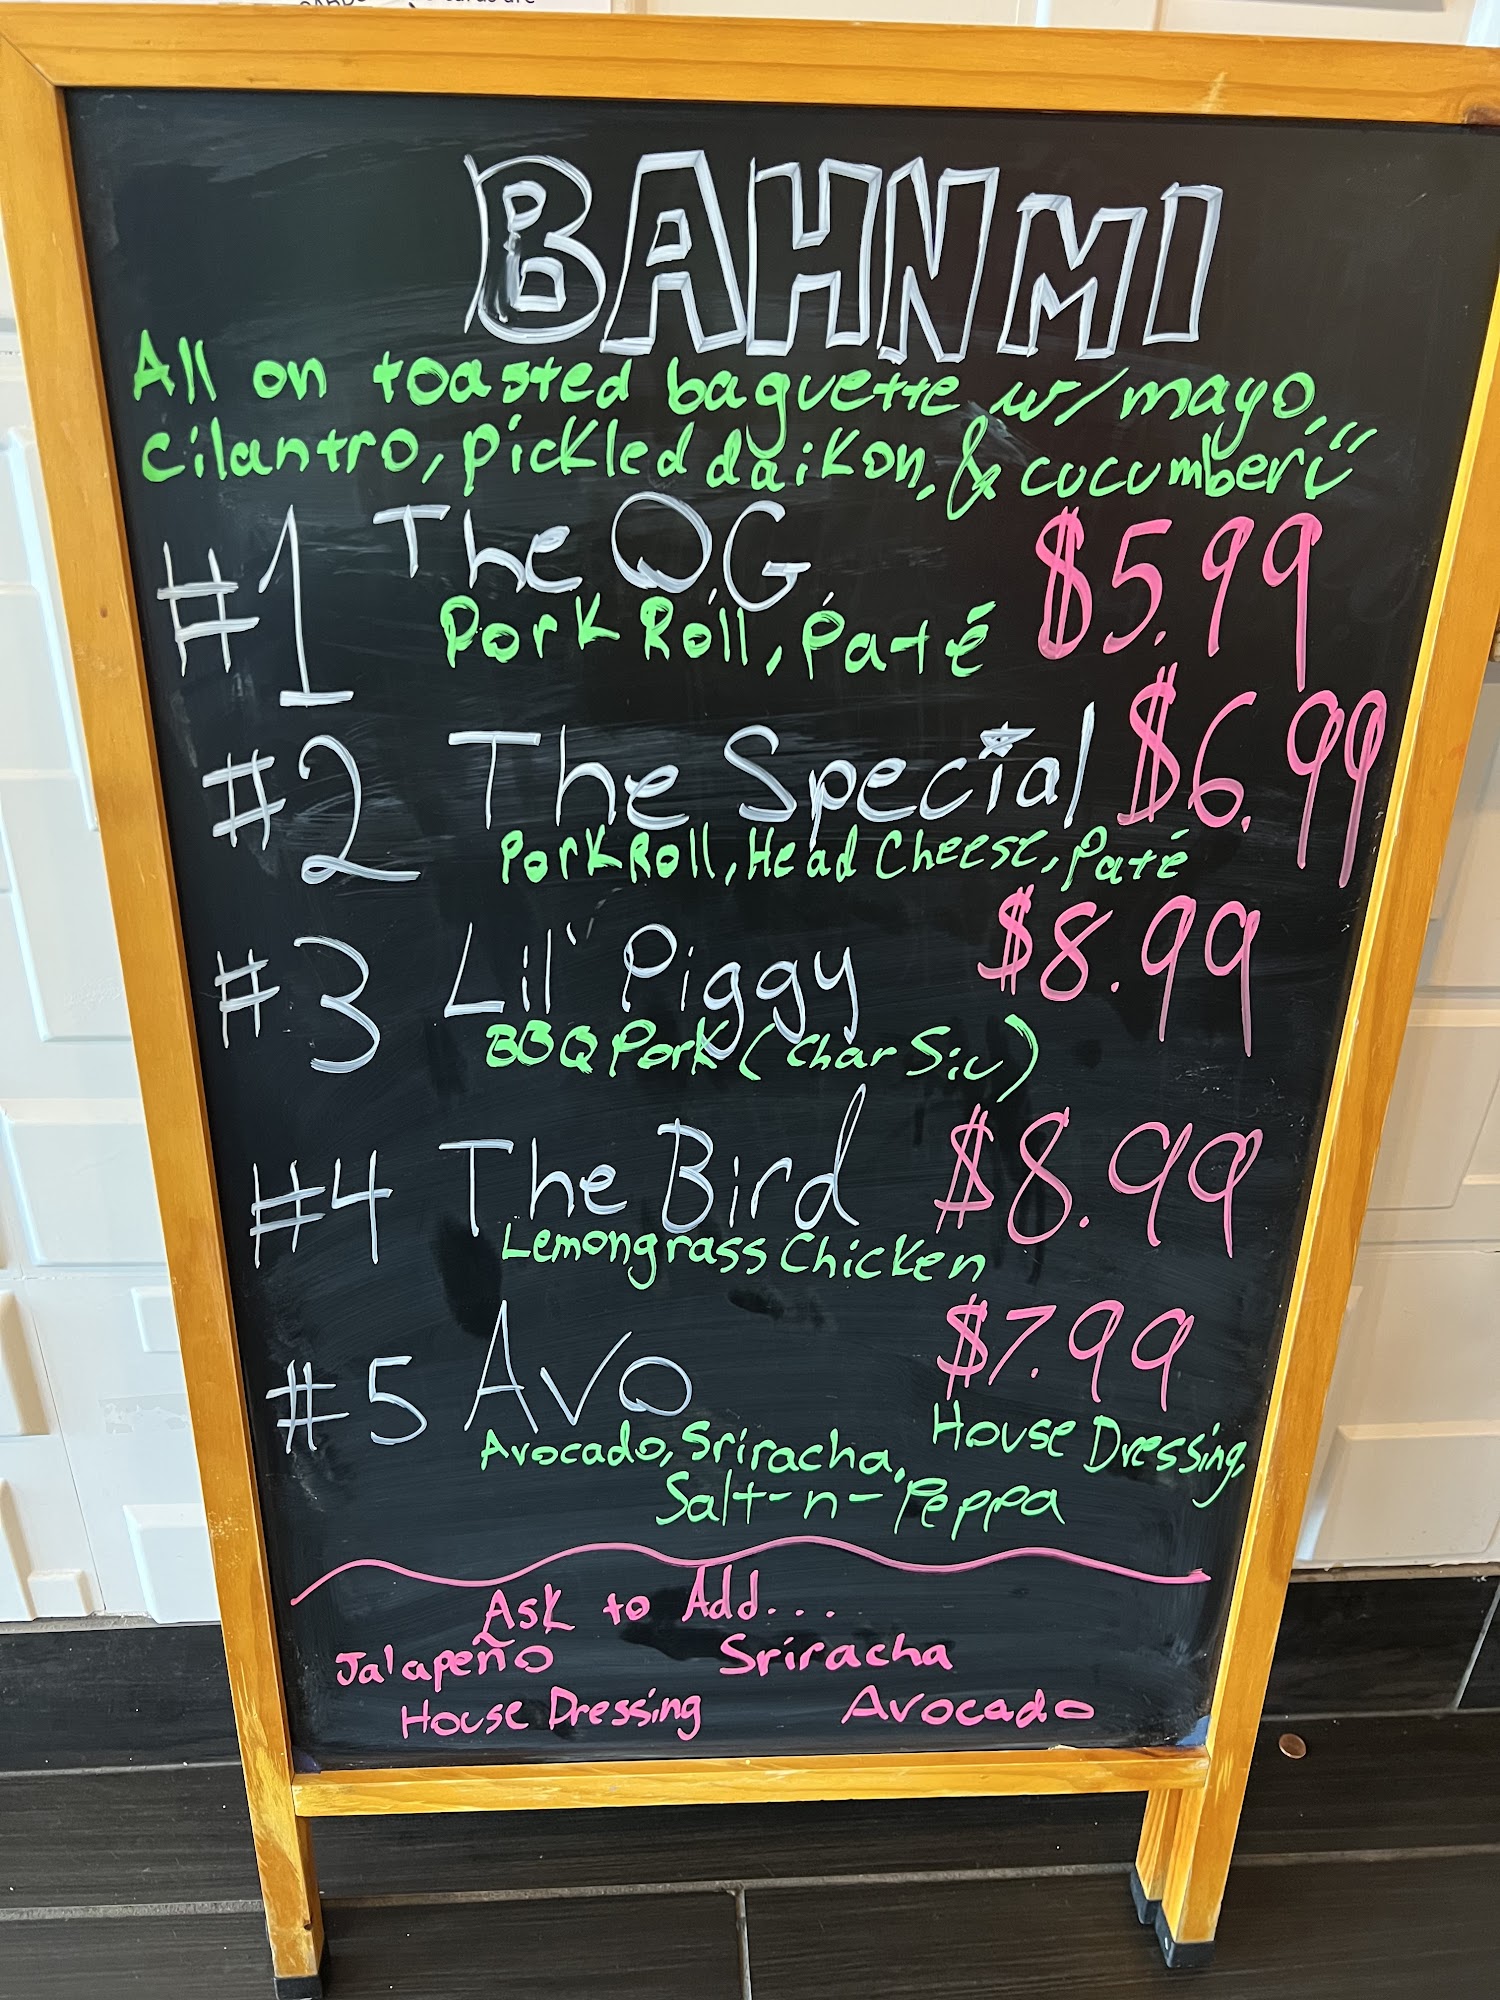 BAHN MI
All on toasted baguette w/ mayo,
cilantro, pickled daikon, & cucumber
#1 The O.G. $5.99
Pork Roll, Paté
#2 The Special $6.99
Pork Roll, Head Cheese, Paté
#3 Lil' Piggy $8.99
BBQ Pork (Char Siu)
#4 The Bird $8.99
Lemongrass Chicken
#5 Avo $7.99
Avocado, Sriracha, House Dressing,
Salt-n-Peppa
Ask to Add...
Jalapeño Sriracha
House Dressing Avocado